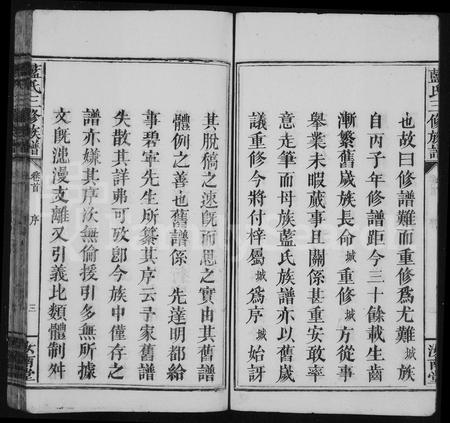 藍氏三修族譜
也故曰修譜難而重修爲尤難 城 族
自丙子年修譜距今三十餘載生齒
漸繁舊嵗族長命 城 重修 城 方從事
舉業未暇蕆事且關係甚重安敢率
意走筆而母族藍氏族譜亦以舊嵗
議重修今將付梓屬 城 爲序 城 始訝
汝南堂
其脫稿之速旣而思之實由其舊譜
體例之善也舊譜係 先達明都給
事碧寧先生所纂其序云予家舊譜
失散其詳弗可攷卽今族中僅存之
譜亦嫌其序次無倫援引多無所據
文旣漶漫支離又引義比類體制舛
藍氏三修族譜
卷首
序
三
汝南堂